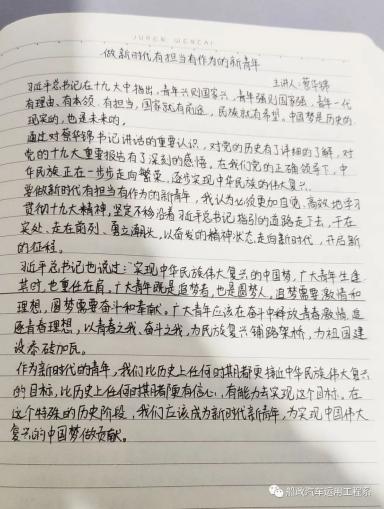 JUREN WENCAI
做新时代有担当有作为的新青年
主讲人:蔡华锦
习近平总书记在十九大中指出,青年兴则国家兴,青年强则国家强,青年一代
有理想、有本领、有担当,国家就有前途,民族就有希望。中国梦是历史的
现实的,也是未来的。
通过对蔡华锦书记讲话的重要认识,对党的历史有了详细的了解,对
党的十九大重要报告有了深刻的感悟。在我们党的正确领导下,中
华民族正在一步步走向繁荣,逐步实现中华民族的伟大复兴。
要做新时代有担当有作为的新青年,我认为必须更加自觉、高效地学习
贯彻十九大精神,坚定不移沿着习近平总书记指引的道路走下去,干在
实处、走在前列、勇立潮头,以奋发的精神状态走向新时代,开启新
的征程。
习近平总书记也说过:“实现中华民族伟大复兴的中国梦,广大青年生逢
其时,也重任在肩,广大青年既是追梦者,也是圆梦人,追梦需要激情和
理想,圆梦需要奋斗和奉献。广大青年应该在奋斗中释放青春激情、追
逐青春理想,以青春之我、奋斗之我,为民族复兴铺路架桥,为祖国建
设添砖加瓦。
作为新时代的青年,我们比历史上任何时期都更接近中华民族伟大复兴
的目标,比历史上任何时期都更有信心、有能力去实现这个目标。在
这个特殊的历史阶段,我们应该成为新时代新青年,为实现中国伟大
复兴的中国梦做贡献。
船政汽车运用工程系